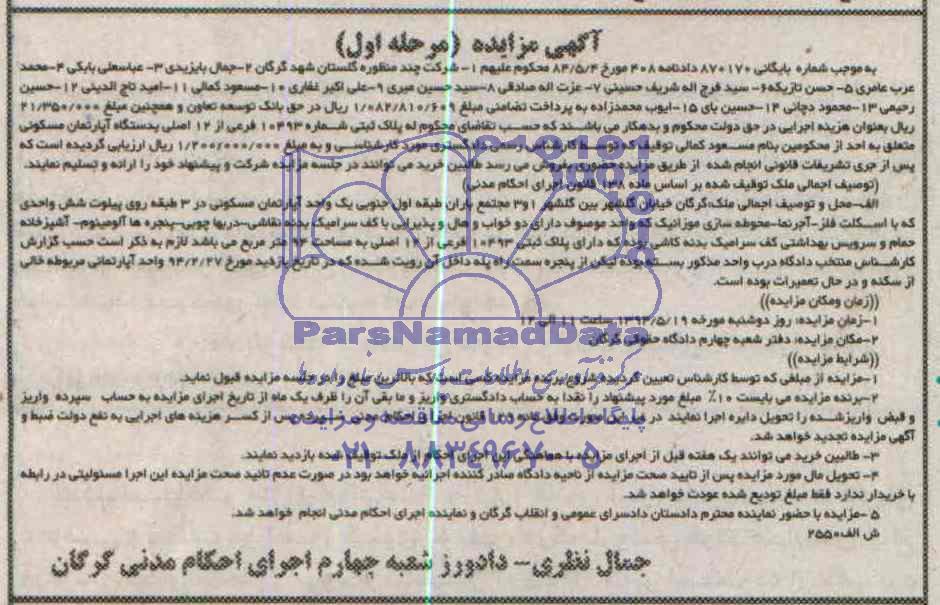 آگهی مزایده (مرحله اول)
به موجب شماره بایگانی ۸۷۰۱۷۰ دادنامه ۴۰۸ مورخ ۸۴/۵/۴ محکوم علیهم ۱- شرکت چند منظوره گلستان شهد گرگان ۲-جمال بایزیدی ۳- عباسعلی بابکی ۴-محمد
عرب عامری ۵- حسن تازیکه ۶- سید فرج اله شریف حسینی ۷- عزت اله صادقی ۸-سید حسین میری ۹-علی اکبر غفاری ۱۰-مسعود کمالی ۱۱-امید تاج الدینی ۱۲-حسین
رحیمی ۱۳-محمود دچانی ۱۴-حسین پای ۱۵-ایوب محمدزاده به پرداخت تضامنی مبلغ ۱/۰۸۲/۸۱۰/۶۰۹ ریال در حق بانک توسعه تعاون و همچنین مبلغ ۲۱/۳۵۰/۰۰۰
ریال بعنوان هزینه اجرایی در حق دولت محکوم و بدهکار می باشند که حسب تقاضای محکوم له پلاک ثبتی شماره ۱۰۴۹۳ فرعی از ۱۲ اصلی بدستگاه آپارتمان مسکونی
متعلق به احد از محکومین بنام مسعود کمالی توقیف که توسط کارشناس رسمی دادگستری مورد کارشناسی و به مبلغ ۱/۲۰۰/۰۰۰/۰۰۰ ریال ارزیابی گردیده است که
پس از جری تشریفات قانونی انجام شده از طریق مزایده حضوری بفروش می رسد طالبین خرید می توانند در جلسه مزایده شرکت و پیشنهاد خود را ارائه و تسلیم نمایند.
(توصیف اجمالی ملک توقیف شده بر اساس ماده ۱۳۸ قانون اجرای احکام مدنی)
الف-محل و توصیف اجمالی ملک:گرگان خیابان گلشهر بین گلشهر ۱و۳ مجتمع باران طبقه اول جنوبی یک واحد آپارتمان مسکونی در ۳ طبقه روی پیلوت شش واحدی
که با اسکلت فلز-آجرنما-محوطه سازی موزائیک که واحد موصوف دارای دو خواب و هال و پذیرایی با کف سرامیک بدنه نقاشی-دربها چوبی-پنجره ها آلومینوم- آشپزخانه
حمام و سرویس بهداشتی کف سرامیک بدنه کاشی بوده که دارای پلاک ثبتی ۱۰۴۹۳ فرعی از ۱۲ اصلی به مساحت ۹۴ متر مربع می باشد لازم به ذکر است حسب گزارش
کارشناس منتخب دادگاه درب واحد مذکور بسته بوده لیکن از پنجره سمت راه پله داخل آن رویت شده که در تاریخ بازدید مورخ ۹۴/۲/۲۷ واحد آپارتمانی مربوطه خالی
از سکنه و در حال تعمیرات بوده است.
((زمان ومکان مزایده))
۱-زمان مزایده: روز دوشنبه مورخه ۱۳۹۴/۵/۱۹ ساعت ۱۱ الی ۱۲
۲-مکان مزایده: دفتر شعبه چهارم دادگاه حقوقی گرگان
((شرایط مزایده))
۱-مزایده از مبلغی که توسط کارشناس تعیین گردیده شروع برنده مزایده کسی است که بالاترین مبلغ را در جلسه مزایده قبول نماید.
۲-برنده مزایده می بایست ۱۰٪ مبلغ مورد پیشنهاد را نقدا به حساب دادگستری واریز و ما بقی آن را ظرف یک ماه از تاریخ اجرای مزایده به حساب سپرده واریز
و قبض واریزشده را تحویل دایره اجرا نمایند در غیر این صورت طبق ماده ۱۲۹ قانون اجرای احکام مدنی سپرده پس از کسر هزینه های اجرایی به نفع دولت ضبط و
آگهی مزایده تجدید خواهد شد.
۳- طالبین خرید می توانند یک هفته قبل از اجرای مزایده با هماهنگی این اجرای احکام از ملک توقیف شده بازدید نمایند.
۴- تحویل مال مورد مزایده پس از تایید صحت مزایده از ناحیه دادگاه صادر کننده اجرائیه خواهد بود در صورت عدم تائید صحت مزایده این اجرا مسئولیتی در رابطه
با خریدار ندارد فقط مبلغ تودیع شده عودت خواهد شد.
۵ -مزایده با حضور نماینده محترم دادستان دادسرای عمومی و انقلاب گرگان و نماینده اجرای احکام مدنی انجام خواهد شد.
ش الف:۲۵۵۰
جمال نظری- دادورز شعبه چهارم اجرای احکام مدنی گرگان
ParsNamadData
پایگاه اطلاع رسانی مناقصه و مزایده
۰۲۱-۸۸۳۴۹۶۷۰-۵